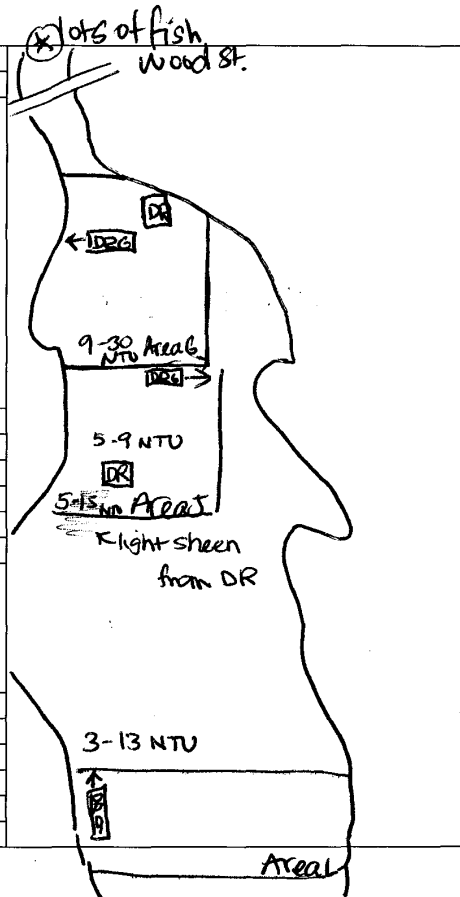 lots of fish
Wood St.
DR
DRG
9-30 Area G
NTU
DRG
5-9 NTU
DR
5-15 NTU Area J
light sheen
from DR
3-13 NTU
Area L